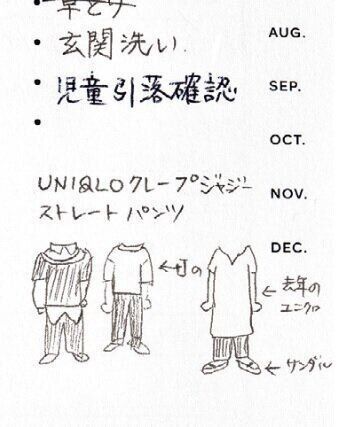 草とり
• 玄関洗い
• 児童引落確認
•
AUG.
SEP.
OCT.
NOV.
DEC.
UNIQLOクレープジャジー
ストレートパンツ
去年の
ユニクロ
サンダル